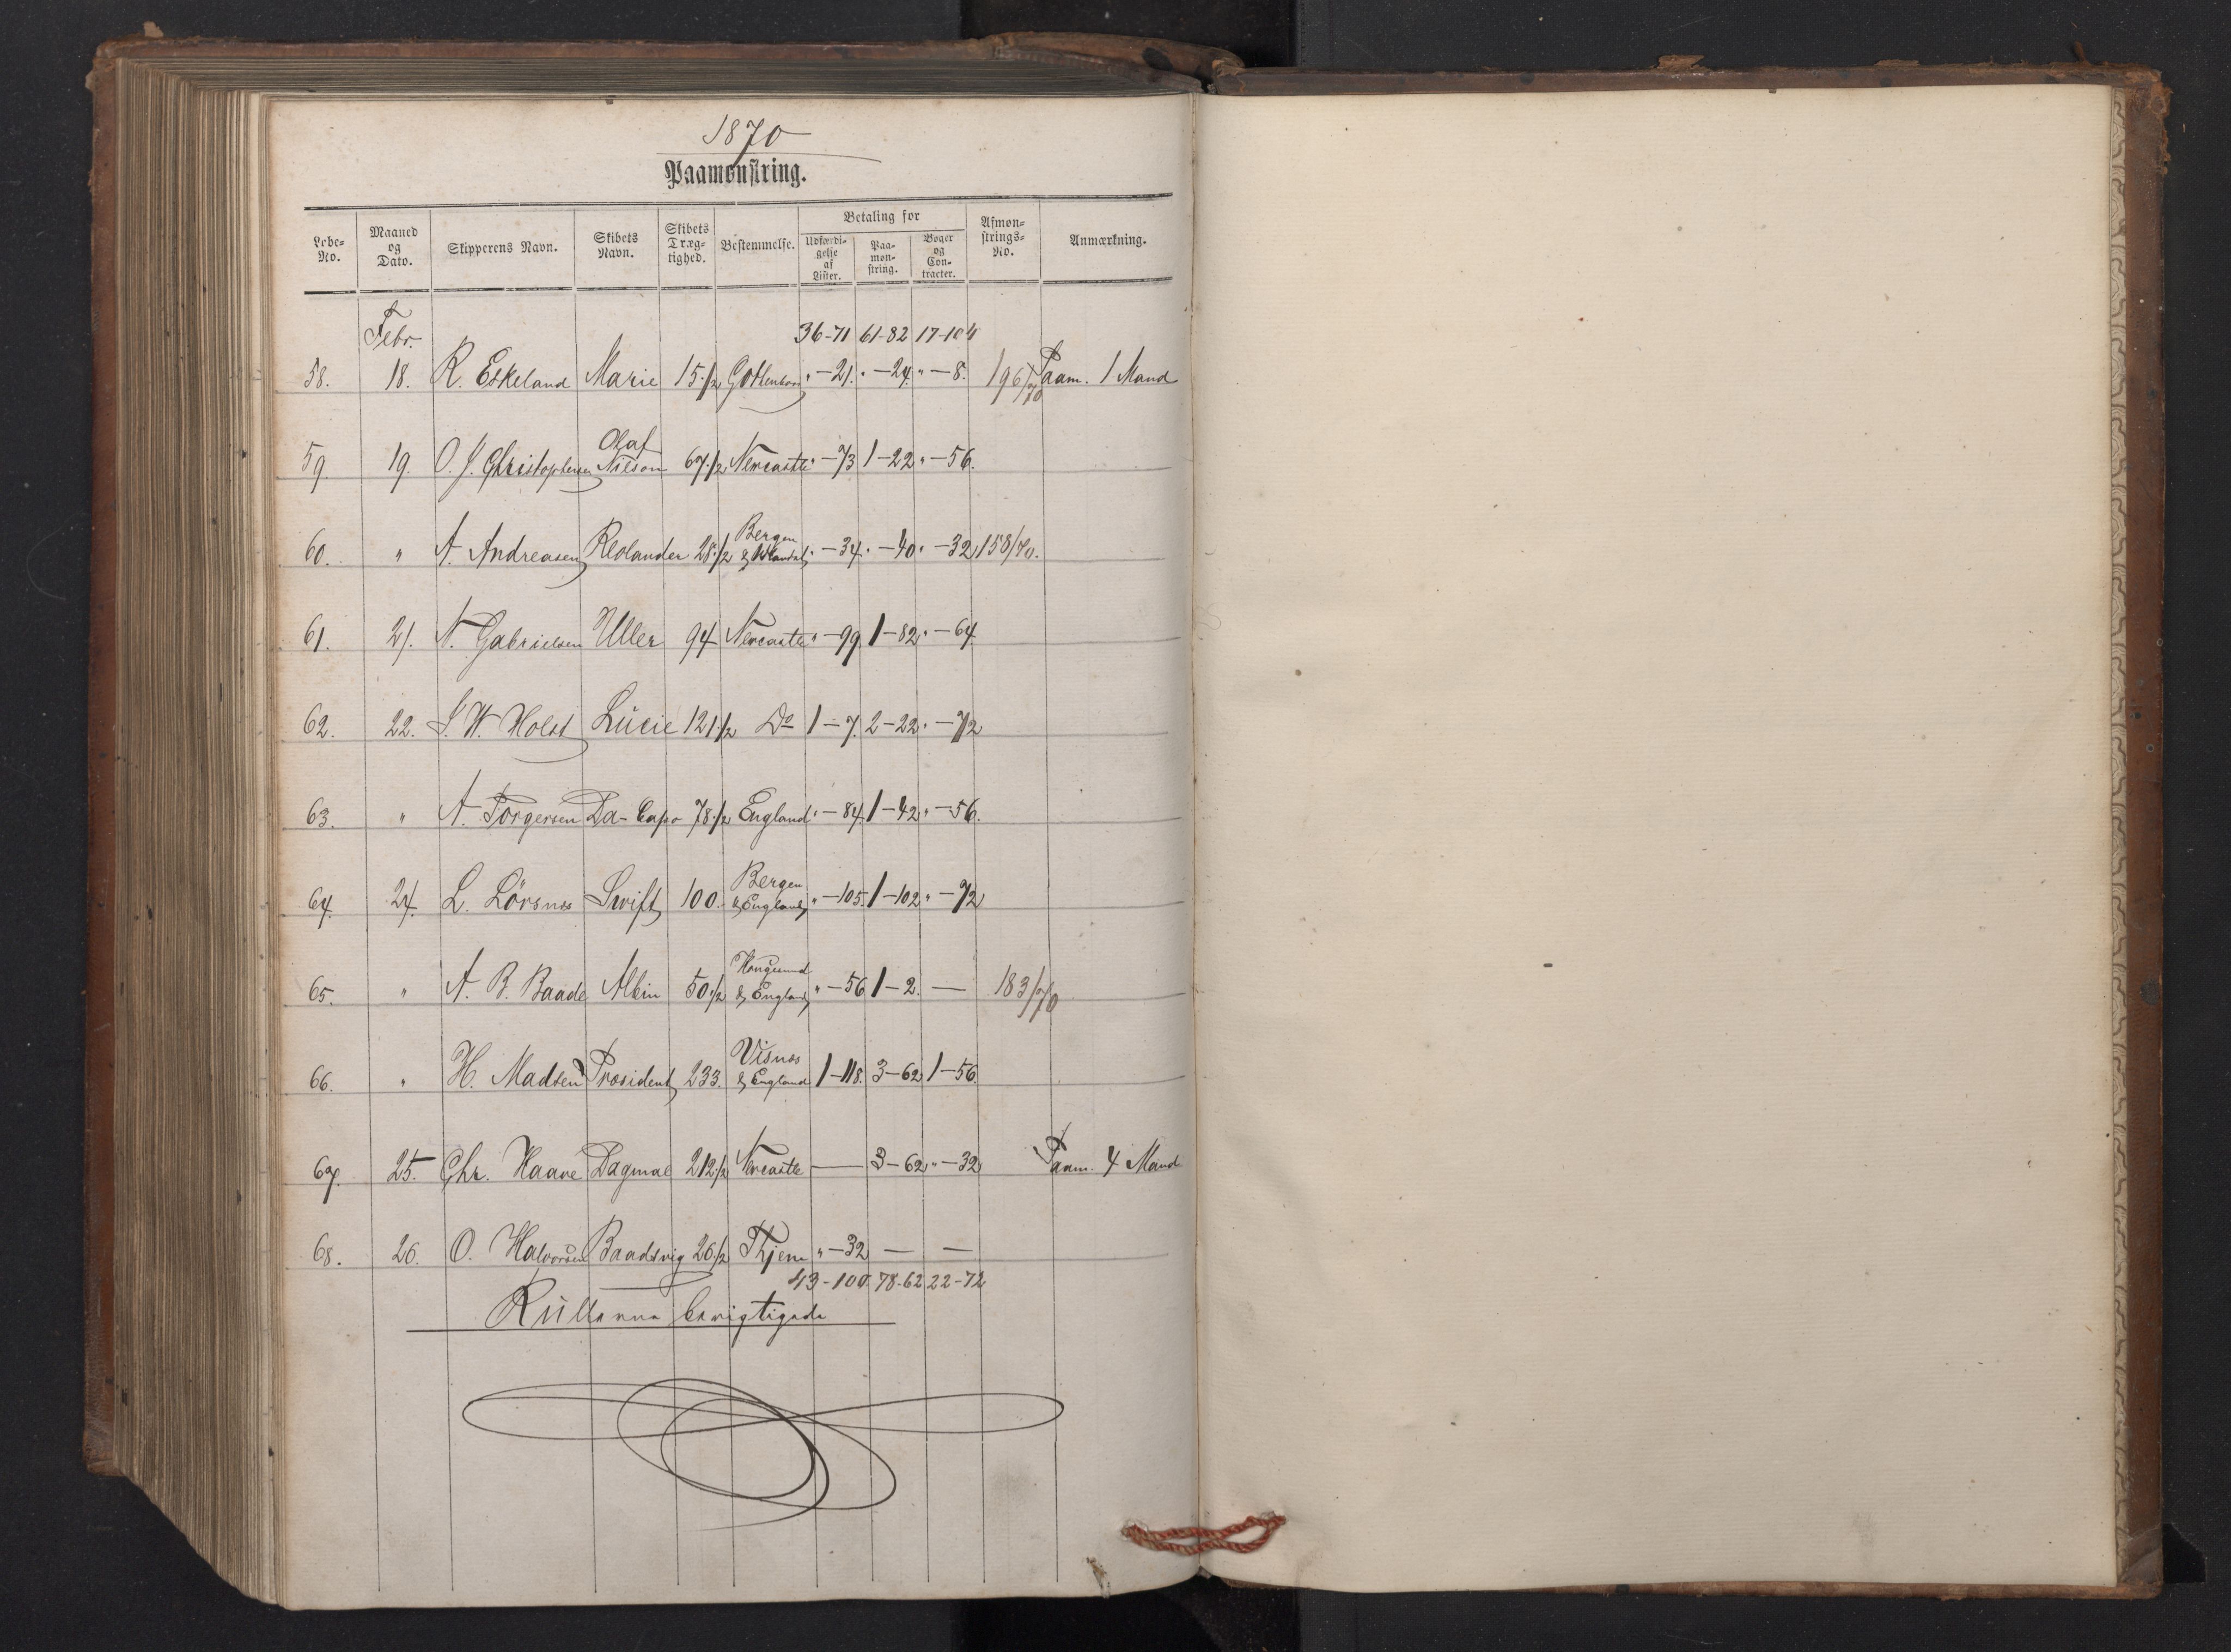 1870
Paamønstring.
Løbe-No. Maaned og Dato. Skipperens Navn. Skibets Navn. Skibets Dræg-tighed. Bestemmelse. Betaling for Udfærdi-gelse af Lister. Paa-møn-string. Bøger og Con-tracter. Afmøn-strings-No. Anmærkning.
Febr. 36-71 61-82 17-104
58. 18. R. Eskeland Marie 15 1/2 Gothenborg " - 21. " - 24. " - 8. 196/70 Paam. 1 Mand
59. 19. O. J. Christophersen Olaf Nilson 67 1/2 Newcastle " - 73 1 - 22 " - 56.
60. " A. Andreasen Reolander 28 1/2 Bergen & " - 34. " - 40. " - 32 158/70.
61. 21. N. Gabrielsen Uller 94 Newcastle " - 99. 1 - 82 " - 64.
62. 22. S. W. Holst Lucie 121 1/2 Do 1 - 7. 2 - 22 " - 72
63. " A. Torgersen Da-Capo 78 1/2 England " - 84. 1 - 42 " - 56.
64. 24. L. Lörsnes Swift 100. Bergen & England " - 105. 1 - 102 " - 72
65. " A. B. Baade Albin 50 1/2 Haugesund & England " - 56 1 - 2. — 183/70
66. " H. Madsen Præsident 233. Visnæs & England 1 - 118. 3 - 62 1 - 56.
67. 25. Chr. Haave Dagmar 212 1/2 Newcastle — 3 - 62 " - 32 Paam. 4 Mand
68. 26. O. Halvorsen Baadsvig 26 1/2 Thjem " - 32 — —
43-100. 78-62 22-72
Rullerne berigtigede